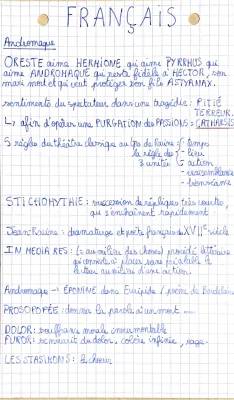 FRANÇAIS
Andromaque
ORESTE aime HERMIONE qui aime PYRRHUS qui
aime ANDROMAQUE qui reste fidèle à HECTOR, son
mari mort et qui veut protéger son fils ASTYANAX.
sentiments du spectateur dans une tragédie : PITIÉ
TERREUR
↳ afin d'opérer une PURGATION des PASSIONS = CATHARSIS
5 règles du théâtre classique au tps de Racine : temps
la règle des - lieu
3 unités - action
- vraisemblance
- bienséance
STICHOMYTHIE : succession de répliques très courtes,
qui s'enchaînent rapidement
Jean Racine : dramaturge et poète français du XVIIe siècle
IN MEDIA RES : (= au milieu des choses) procédé littéraire
qui consiste à placer sans préalable le
lecteur au milieu dans action.
Andromaque → ÉPONYME dans Euripide / poème de Baudelaire
PROSOPOPÉE : donner la parole à un mort
DOLOR : souffrance morale insurmontable
FUROR : du dolor, colère infinie, rage
LES STASIMONS : le chœur